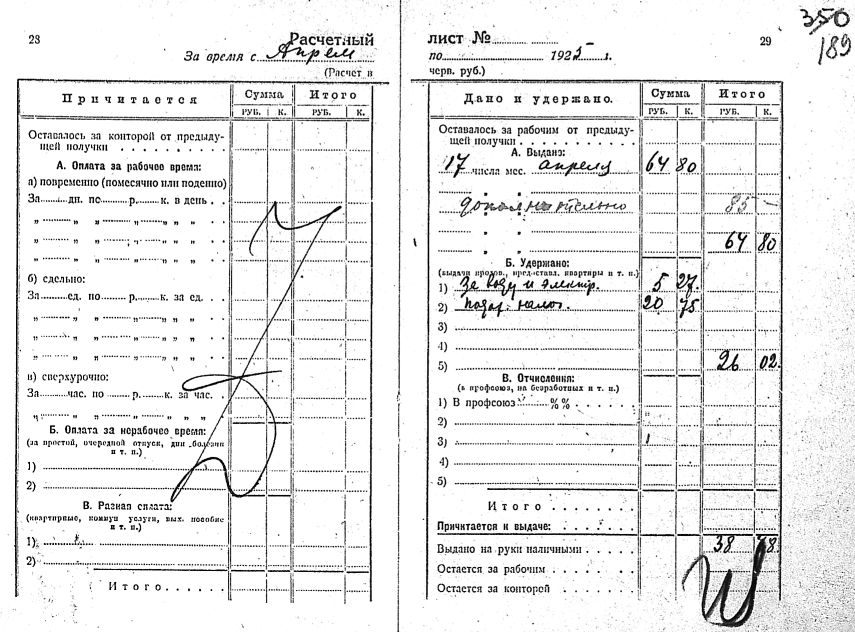 28
Расчетный
За время с Апрель
(Расчет в
Причитается
Сумма
Итого
РУБ.
К.
РУБ.
К.
Оставалось за конторой от предыду-
щей получки . . . . . . . . .
А. Оплата за рабочее время:
а) повременно (помесячно или поденно)
За........дн. по........р........к. в день . .
„ ........ „ „ ........ „ ........ „ „ „ . .
„ ........ „ „ ........ „ ........ „ „ „ . .
„ ........ „ „ ........ „ ........ „ „ „ . .
б) сдельно:
За........ед. по........р........к. за ед. . . .
„ ........ „ „ ........ „ ........ „ „ „ . .
„ ........ „ „ ........ „ ........ „ „ „ . .
„ ........ „ „ ........ „ ........ „ „ „ . .
в) сверхурочно:
За........час. по........р........к. за час. . .
„ ........ „ „ ........ „ ........ „ „ „ . .
Б. Оплата за нерабочее время:
(за простой, очередной отпуск, дни болезни
и т. п.)
1)
2)
В. Разная оплата:
(квартирные, коммун услуги, вых. пособие
и т. п.)
1)
2)
Итого . . . . .
350
189
ЛИСТ №
29
по ........ 1925 г.
черв. руб.)
Дано и удержано.
Сумма
Итого
РУБ.
К.
РУБ.
К.
Оставалось за рабочим от предыду-
щей получки . . . . . . . . .
А. Выдано:
17 числа мес. апреля 64 80
„ „
дополнительно 85 —
„ „ 64 80
Б. Удержано:
(выдачи продов., предоставл. квартиры и т. п.)
1) За воду и электр. 5 27
2) Подох. налог. 20 75
3)
4)
5) 26 02
В. Отчисления:
(в профсоюз, на безработных и т. п.)
1) В профсоюз ........ %% . . . . . .
2)
3)
4)
5)
Итого . . . . . . .
Причитается к выдаче: . . . . . .
Выдано на руки наличными . . . . . 38 78
Остается за рабочим . . . . . . .
Остается за конторой . . . . . . .